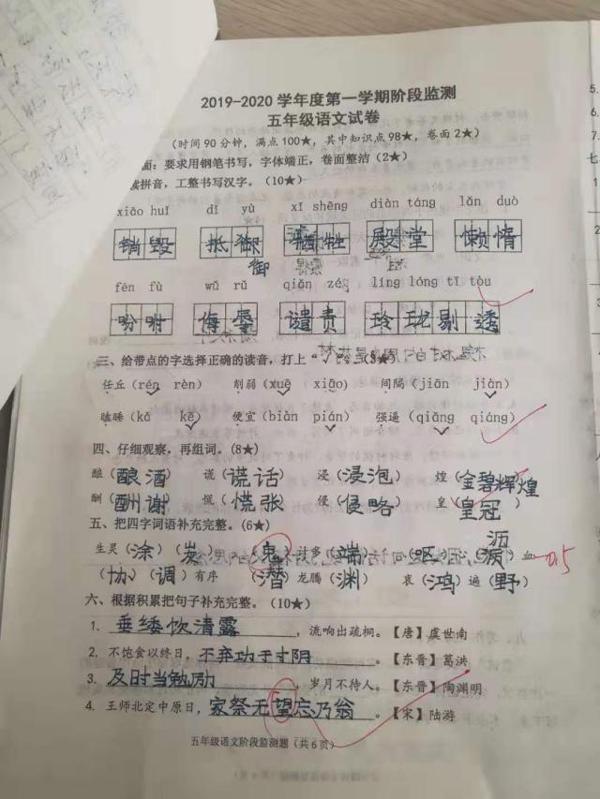 2019-2020 学年度第一学期阶段监测
五年级语文试卷
(时间90分钟，满点100★，其中知识点98★，卷面2★)
面：要求用钢笔书写，字体端正，卷面整洁(2★)
读拼音，工整书写汉字。(10★)
xiāo huǐ dǐ yù xī shēng diàn táng lǎn duò
销毁 抵御 牺牲 殿堂 懒惰
御
fēn fù wǔ rǔ qiǎn zé líng lóng tī tòu
吩咐 侮辱 谴责 玲珑剔透
三、给带点的字选择正确的读音，打上“√”。(3★)
任丘(rén rèn) 削弱(xuē xiāo) 间隔(jiān jiàn)
瞌睡(kā kē) 便宜(biàn pián) 强逼(qiǎng qiáng)
四、仔细观察，再组词。(8★)
酿(酿酒) 谎(谎话) 浸(浸泡) 煌(金碧辉煌)
酬(酬谢) 慌(慌张) 侵(侵略) 皇(皇冠)
五、把四字词语补充完整。(6★)
沥
生灵(涂)(炭) 多(端) (呕) 血 0.5
(协)(调)有序 (潜)龙腾(渊) 哀(鸿)遍(野)
六、根据积累把句子补充完整。(10★)
1. 垂緌饮清露，流响出疏桐。【唐】虞世南
2. 不饱食以终日，不弃功于寸阴。【东晋】葛洪
3. 及时当勉励，岁月不待人。【东晋】陶渊明
4. 王师北定中原日，家祭无望忘乃翁。【宋】陆游
五年级语文阶段监测题(共6页)